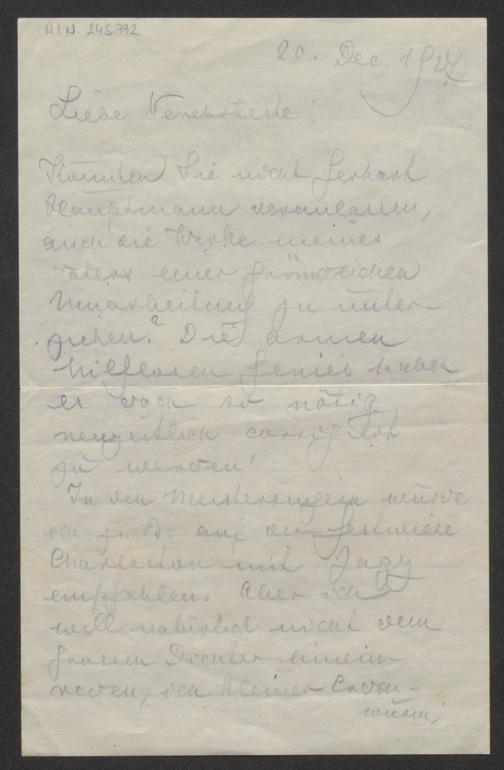 H.I.N. 245.792
20. Dec. 1927
Liebe Verehrteste!
Könnten Sie nicht Gerhart
Hauptmann veranlassen,
auch die Werke meines
Vaters einer gründlichen
Umarbeitung zu unter-
ziehen? Die armen
hilflosen Genies haben
es doch so nötig
neuzeitlich corrigiert
zu werden!
In den Meistersingern würde
ich z. B. auf der Festwiese
Charleston mit Jazz
empfehlen. Aber ich
will natürlich nicht dem
grossen Dichter hinein-
reden, der kleine Erden-
wurm,